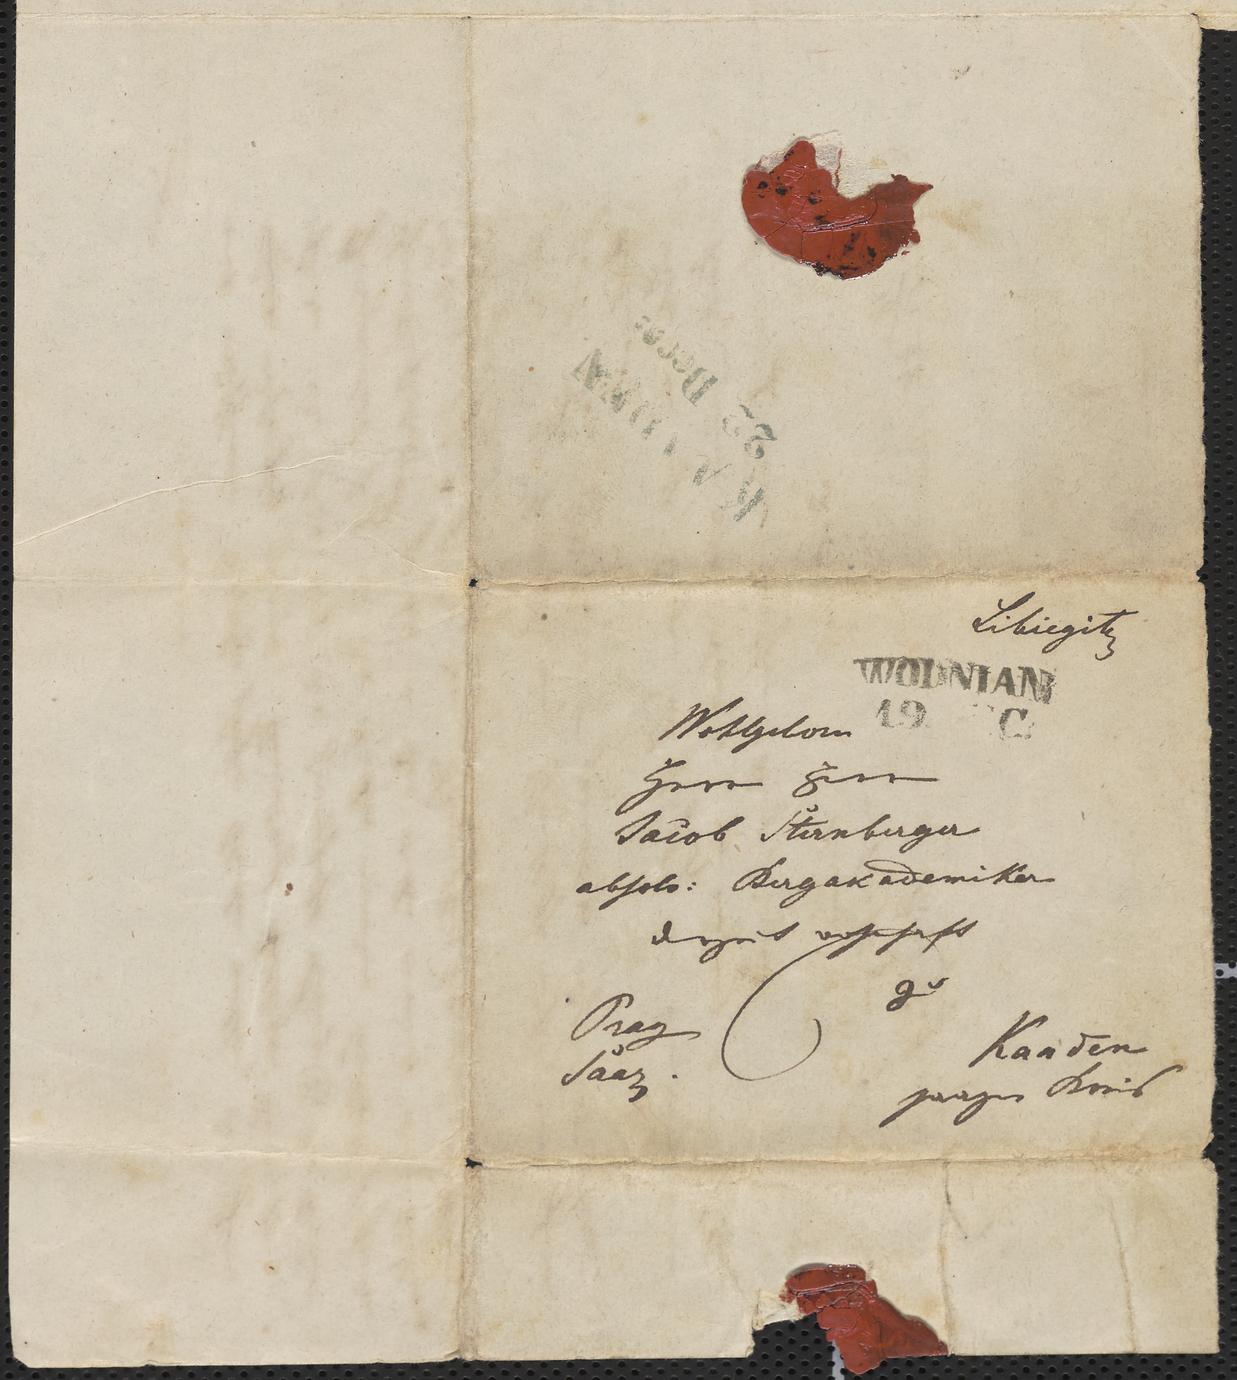 KAADEN
22 Dece:
Libiegitz
WODNIAN
19 C.
Wohlgeborn
Herrn Herrn
Jacob Sternberger
absolv: Bergakademiker
derzeit
zu
Prag
Saaz.
Kaaden
Kreis